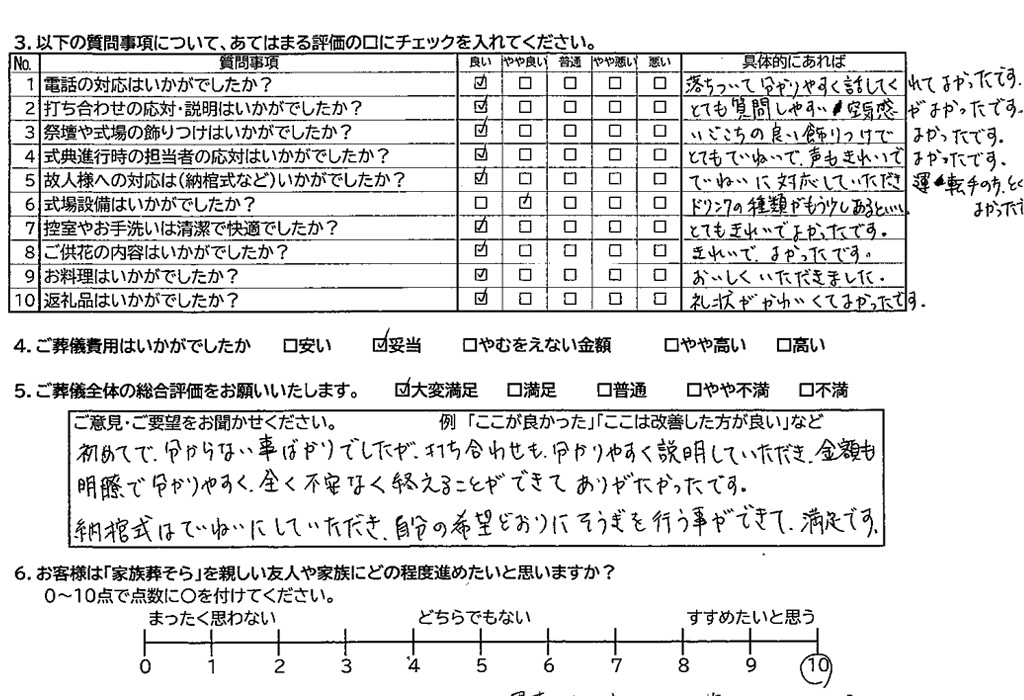 3. 以下の質問事項について、あてはまる評価の□にチェックを入れてください。
No. 質問事項 良い やや良い 普通 やや悪い 悪い 具体的にあれば
1 電話の対応はいかがでしたか？ ☑ □ □ □ □ 落ちついて分かりやすく話してくれてよかったです。
2 打ち合わせの応対・説明はいかがでしたか？ ☑ □ □ □ □ とても質問しやすい空気感がよかったです。
3 祭壇や式場の飾りつけはいかがでしたか？ ☑ □ □ □ □ いごこちの良い飾りつけでよかったです。
4 式典進行時の担当者の応対はいかがでしたか？ ☑ □ □ □ □ とてもていねいで、声もきれいでよかったです。
5 故人様への対応は(納棺式など)いかがでしたか？ ☑ □ □ □ □ ていねいに対応していただき 運転手の方、とく
よかったで
6 式場設備はいかがでしたか？ □ ☑ □ □ □ ドリンクの種類がもう少しあるといい
7 控室やお手洗いは清潔で快適でしたか？ ☑ □ □ □ □ とてもきれいでよかったです。
8 ご供花の内容はいかがでしたか？ ☑ □ □ □ □ きれいで、よかったです。
9 お料理はいかがでしたか？ ☑ □ □ □ □ おいしくいただきました。
10 返礼品はいかがでしたか？ ☑ □ □ □ □ 礼状がかわいくてよかったです。
4. ご葬儀費用はいかがでしたか □安い ☑妥当 □やむをえない金額 □やや高い □高い
5. ご葬儀全体の総合評価をお願いいたします。 ☑大変満足 □満足 □普通 □やや不満 □不満
ご意見・ご要望をお聞かせください。 例 「ここが良かった」「ここは改善した方が良い」など
初めてで、分からない事ばかりでしたが、打ち合わせも、分かりやすく説明していただき、金額も
明瞭で分かりやすく、全く不安なく終えることができてありがたかったです。
納棺式はていねいにしていただき、自分の希望どおりにそうぎを行う事ができて、満足です。
6. お客様は「家族葬そら」を親しい友人や家族にどの程度進めたいと思いますか？
0～10点で点数に○を付けてください。
まったく思わない どちらでもない すすめたいと思う
0 1 2 3 4 5 6 7 8 9 10